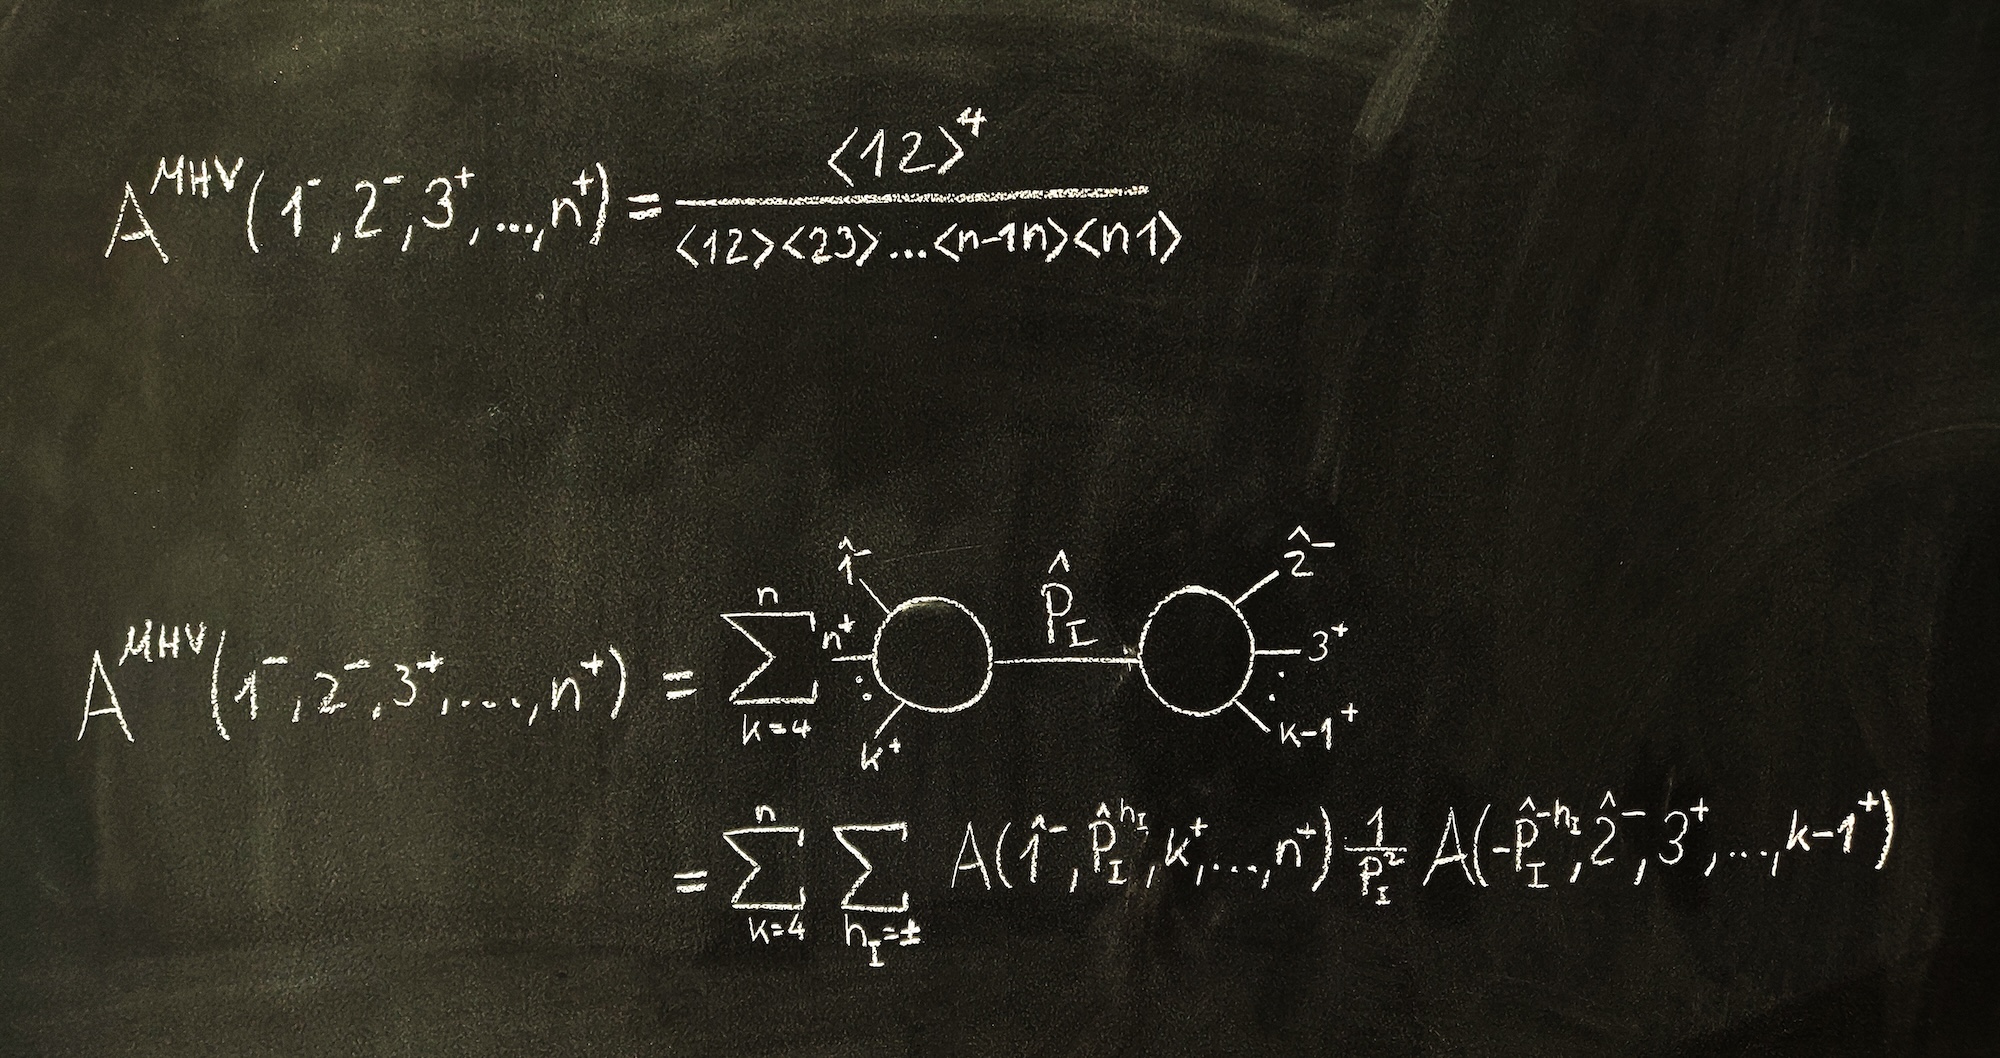 A^MHV(1^-, 2^-, 3^+, ..., n^+) = ⟨12⟩^4 / ⟨12⟩⟨23⟩...⟨n-1n⟩⟨n1⟩
A^MHV(1^-, 2^-, 3^+, ..., n^+) = ∑_{k=4}^{n} n^+ 1̂^- k^+ P̂_I 2̂^- 3^+ k-1^+
= ∑_{k=4}^{n} ∑_{h_I=±} A(1̂^-, P̂_I^{h_I}, k^+, ..., n^+) 1/P_I^2 A(-P̂_I^{-h_I}, 2̂^-, 3^+, ..., k-1^+)